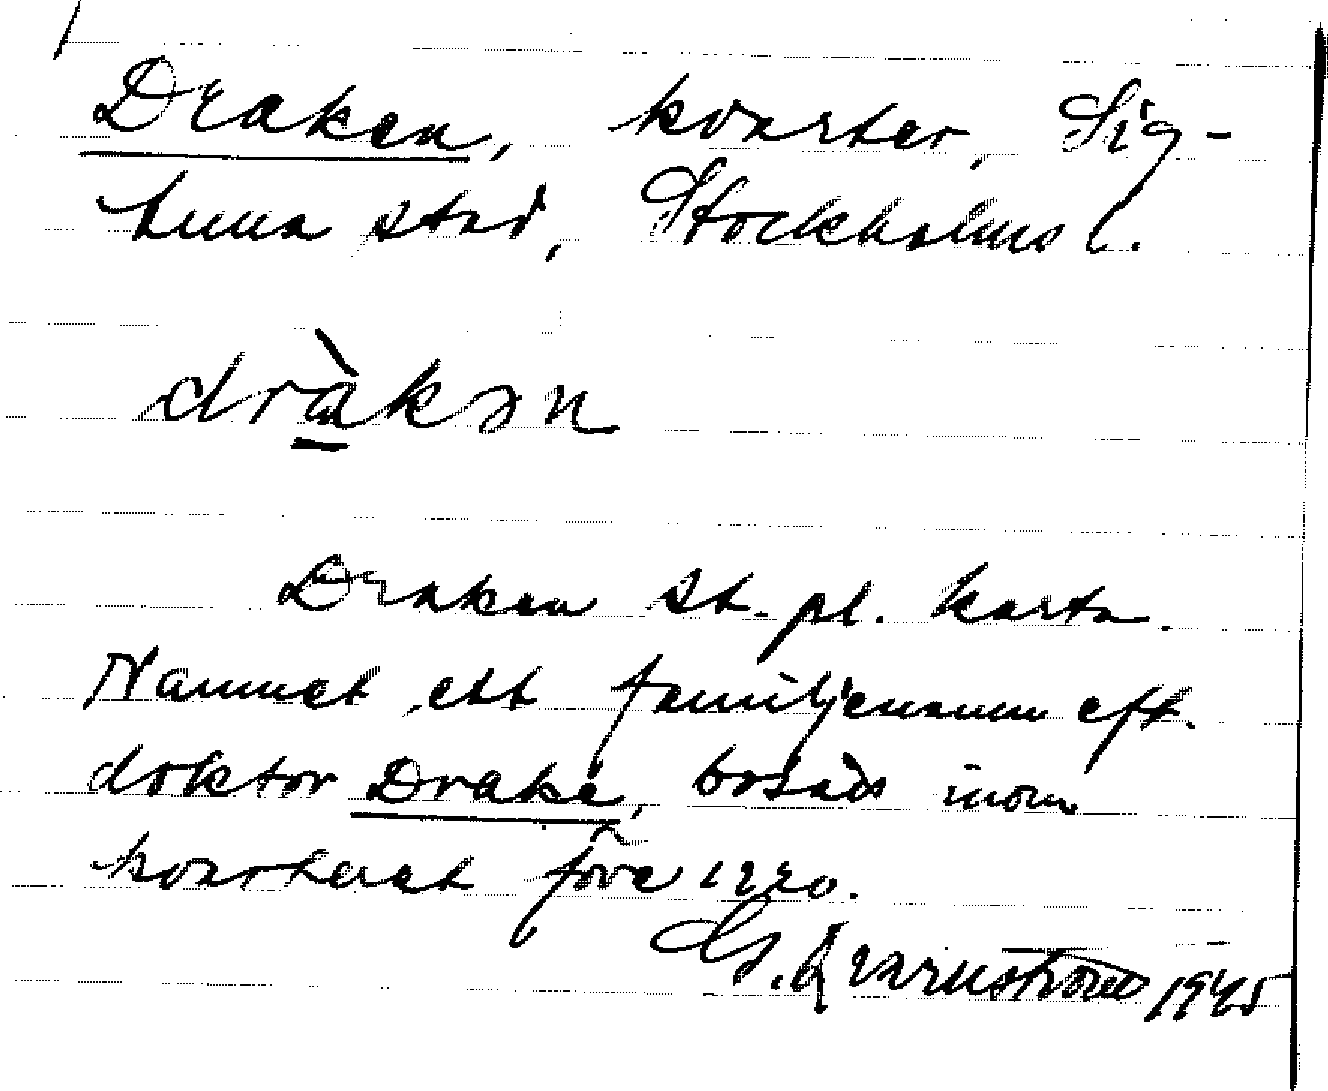 Draken, kvarter, Sig-
tuna stad, Stockholms l.
dràkən
Draken st. pl. karta.
Namnet ett familjenamn eft.
doktor Drake, bosatt inom
kvarteret före
G. Qvarnström 1945